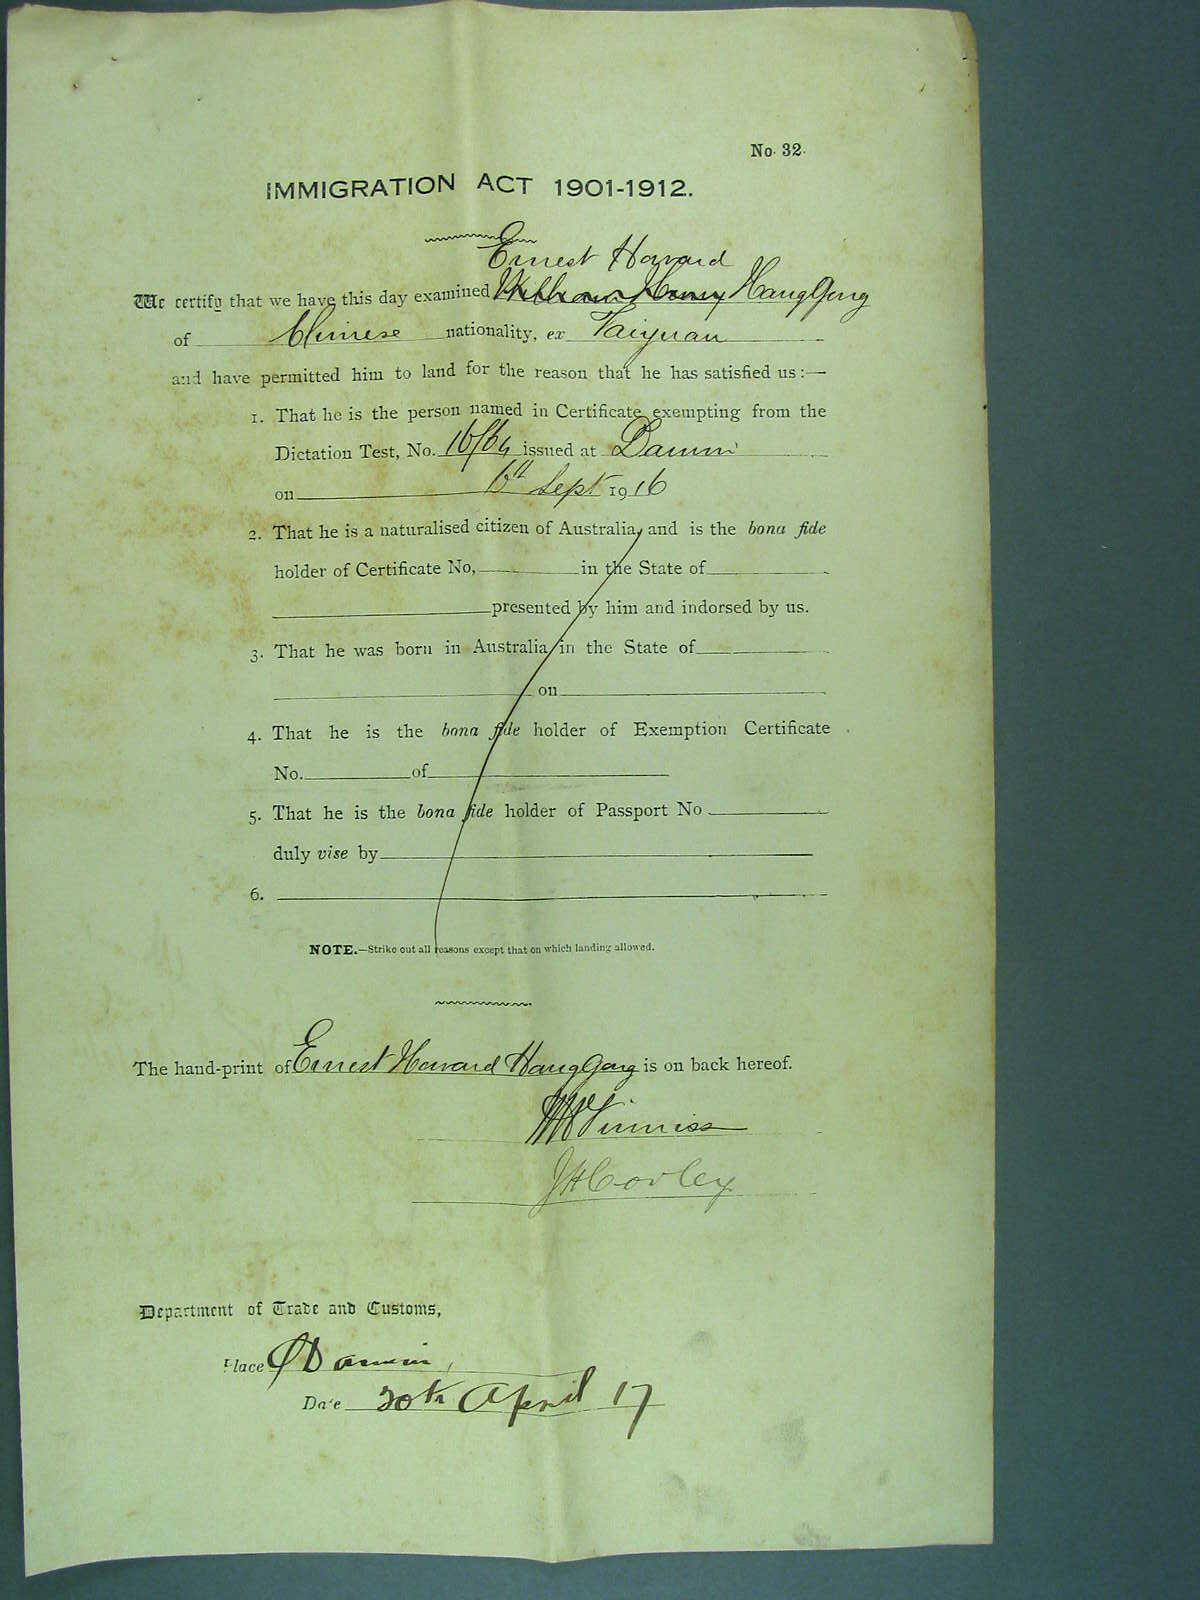 No. 32.
IMMIGRATION ACT 1901-1912.
Ernest Howard
We certify that we have this day examined William Henry Hang Gong
of Chinese nationality, ex Taiyuan
and have permitted him to land for the reason that he has satisfied us:—
1. That he is the person named in Certificate exempting from the
Dictation Test, No. 16/64 issued at Darwin
on 6th Sept 1916
2. That he is a naturalised citizen of Australia, and is the bona fide
holder of Certificate No, in the State of
presented by him and indorsed by us.
3. That he was born in Australia in the State of
on
4. That he is the bona fide holder of Exemption Certificate
No. of
5. That he is the bona fide holder of Passport No
duly vise by
6.
NOTE.—Strike out all reasons except that on which landing allowed.
The hand-print of Ernest Howard Hang Gong is on back hereof.
JHCorley
Department of Trade and Customs,
Place Darwin,
Date 20th April 17